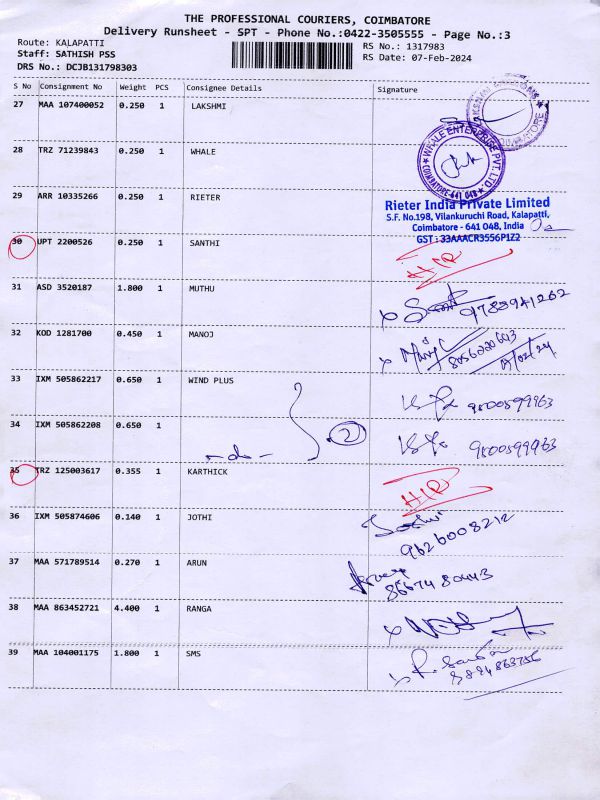 THE PROFESSIONAL COURIERS, COIMBATORE
Delivery Runsheet - SPT - Phone No.:0422-3505555 - Page No.:3
Route: KALAPATTI
Staff: SATHISH PSS
DRS No.: DCJB131798303
RS No.: 1317983
RS Date: 07-Feb-2024
S No Consignment No Weight PCS Consignee Details Signature
27 MAA 107400052 0.250 1 LAKSHMI
28 TRZ 71239843 0.250 1 WHALE
WHALE ENTERPRISE PVT. LTD
COIMBATORE-641 048
29 ARR 10335266 0.250 1 RIETER
Rieter India Private Limited
S.F. No.198, Vilankuruchi Road, Kalapatti,
Coimbatore - 641 048, India
GST : 33AAACR3556P1Z2
30 UPT 2200526 0.250 1 SANTHI
31 ASD 3520187 1.800 1 MUTHU
9783941262
32 KOD 1281700 0.450 1 MANOJ
33 IXM 505862217 0.650 1 WIND PLUS
9500599963
34 IXM 505862208 0.650 1
-do- 2 9500599963
35 TRZ 125003617 0.355 1 KARTHICK
36 IXM 505874606 0.140 1 JOTHI
9626008212
37 MAA 571789514 0.270 1 ARUN
8667480443
38 MAA 863452721 4.400 1 RANGA
39 MAA 104001175 1.800 1 SMS